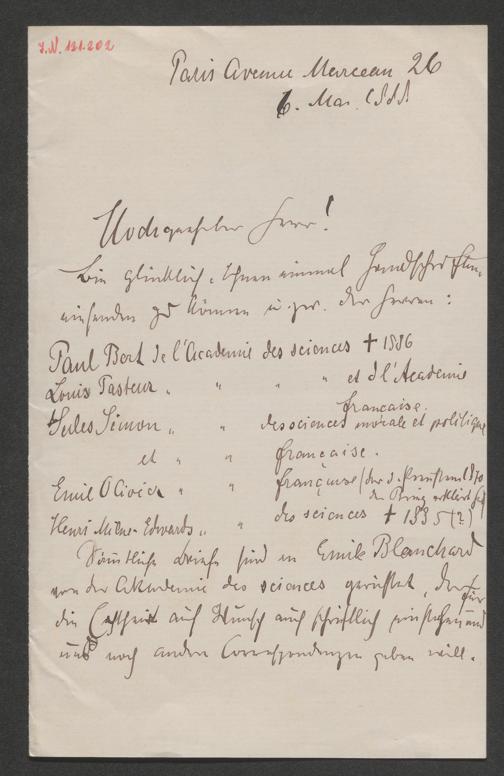 J.N. 121.202
Paris Avenue Marceau 26
6. Mai 1888
Hochgeehrter Herr!
Bin glücklich, Ihnen einmal Handschriften
einsenden zu können u. zw. der Herren:
Paul Bert de l'Academie des sciences † 1886
Louis Pasteur " " " " et d l'Academie
francaise.
Jules Simon " des sciences morale et politique
et " " francaise.
Emil Olivier " " française (der d.
den erklärt hat
Henri Milne-Edwards " " des sciences † 1885 (?)
Sämtliche Briefe sind an Emile Blanchard
von der Akademie des sciences gerichtet, der für
die Echtheit auf Wunsch auch schriftlich einstehen und
uns noch andere Correspondenzen geben will.